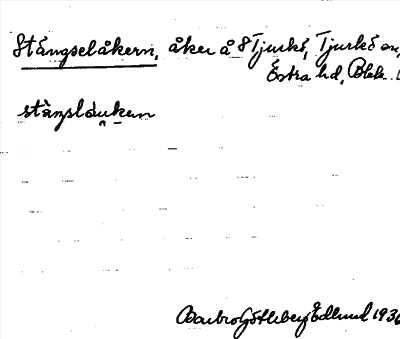 Stängselåkern, åker å 8 Tjurkö, Tjurkö sn,
Östra hd, Blek.
stäŋslåukɐn
Barbro Götleberg Edlund 1936